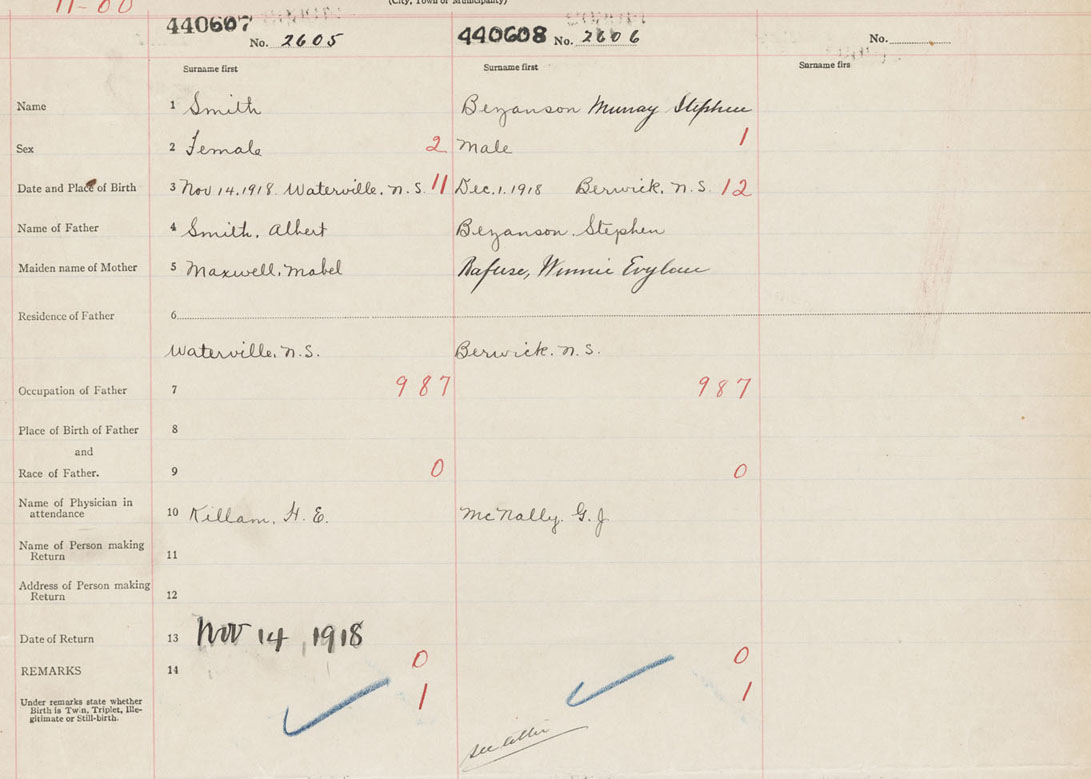 11-00
(City, Town or Municipality)
440607 No. 2605 440608 No. 2606 No.
Surname first Surname first Surname firs
Name 1 Smith Bezanson Murray Stephen
Sex 2 Female 2 Male 1
Date and Place of Birth 3 Nov 14.1918. Waterville, N.S. 11 Dec. 1. 1918 Berwick, N.S. 12
Name of Father 4 Smith, Albert Bezanson, Stephen
Maiden name of Mother 5 Maxwell, Mabel Rafuse, Winnie Evylow
Residence of Father 6
Waterville, N.S. Berwick, N.S.
Occupation of Father 7 987 987
Place of Birth of Father 8
and
Race of Father. 9 0 0
Name of Physician in
attendance 10 Killam, H. E. McNally, G. J
Name of Person making
Return 11
Address of Person making
Return 12
Date of Return 13 Nov 14, 1918
0 0
REMARKS 14
Under remarks state whether 1 1
Birth is Twin, Triplet, Ille-
gitimate or Still-birth.
see letter